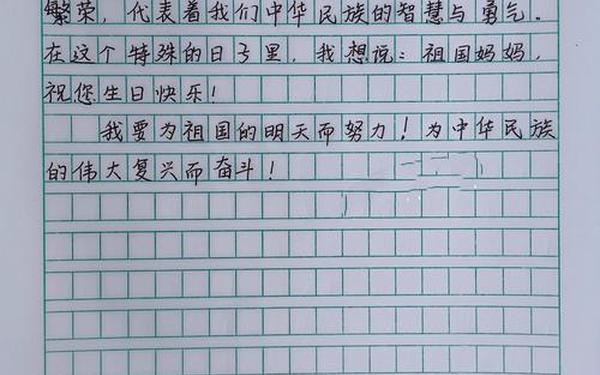 繁荣，代表着我们中华民族的智慧与勇气。
在这个特殊的日子里，我想说：祖国妈妈，
祝您生日快乐！
我要为祖国的明天而努力！为中华民族
的伟大复兴而奋斗！